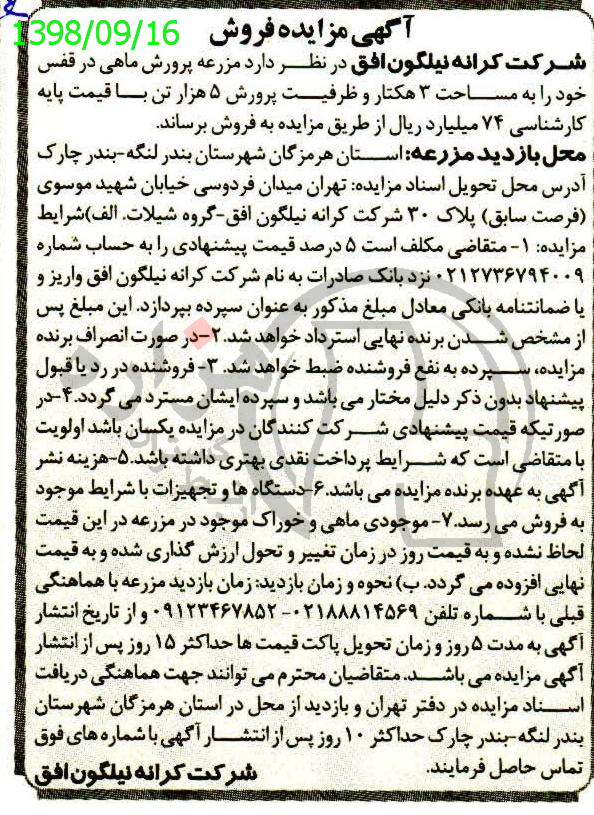 1398/09/16
آگهی مزایده فروش
شرکت کرانه نیلگون افق در نظر دارد مزرعه پرورش ماهی در قفس
خود را به مساحت ۳ هکتار و ظرفیت پرورش ۵ هزار تن با قیمت پایه
کارشناسی ۷۴ میلیارد ریال از طریق مزایده به فروش برساند.
محل بازدید مزرعه: استان هرمزگان شهرستان بندر لنگه-بندر چارک
آدرس محل تحویل اسناد مزایده: تهران میدان فردوسی خیابان شهید موسوی
(فرصت سابق) پلاک ۳۰ شرکت کرانه نیلگون افق-گروه شیلات. الف)شرایط
مزایده: ۱- متقاضی مکلف است ۵ درصد قیمت پیشنهادی را به حساب شماره
۰۲۱۲۷۳۶۷۹۴۰۰۹ نزد بانک صادرات به نام شرکت کرانه نیلگون افق واریز و
یا ضمانتنامه بانکی معادل مبلغ مذکور به عنوان سپرده بپردازد. این مبلغ پس
از مشخص شدن برنده نهایی استرداد خواهد شد. ۲-در صورت انصراف برنده
مزایده، سپرده به نفع فروشنده ضبط خواهد شد. ۳- فروشنده در رد یا قبول
پیشنهاد بدون ذکر دلیل مختار می باشد و سپرده ایشان مسترد می گردد. ۴-در
صورتیکه قیمت پیشنهادی شرکت کنندگان در مزایده یکسان باشد اولویت
با متقاضی است که شرایط پرداخت نقدی بهتری داشته باشد. ۵-هزینه نشر
آگهی به عهده برنده مزایده می باشد. ۶-دستگاه ها و تجهیزات با شرایط موجود
به فروش می رسد. ۷- موجودی ماهی و خوراک موجود در مزرعه در این قیمت
لحاظ نشده و به قیمت روز در زمان تغییر و تحول ارزش گذاری شده و به قیمت
نهایی افزوده می گردد. ب) نحوه و زمان بازدید: زمان بازدید مزرعه با هماهنگی
قبلی با شماره تلفن ۰۲۱۸۸۸۱۴۵۶۹- ۰۹۱۲۳۴۶۷۸۵۲ و از تاریخ انتشار
آگهی به مدت ۵ روز و زمان تحویل پاکت قیمت ها حداکثر ۱۵ روز پس از انتشار
آگهی مزایده می باشد. متقاضیان محترم می توانند جهت هماهنگی دریافت
اسناد مزایده در دفتر تهران و بازدید از محل در استان هرمزگان شهرستان
بندر لنگه-بندر چارک حداکثر ۱۰ روز پس از انتشار آگهی با شماره های فوق
تماس حاصل فرمایند.
شرکت کرانه نیلگون افق